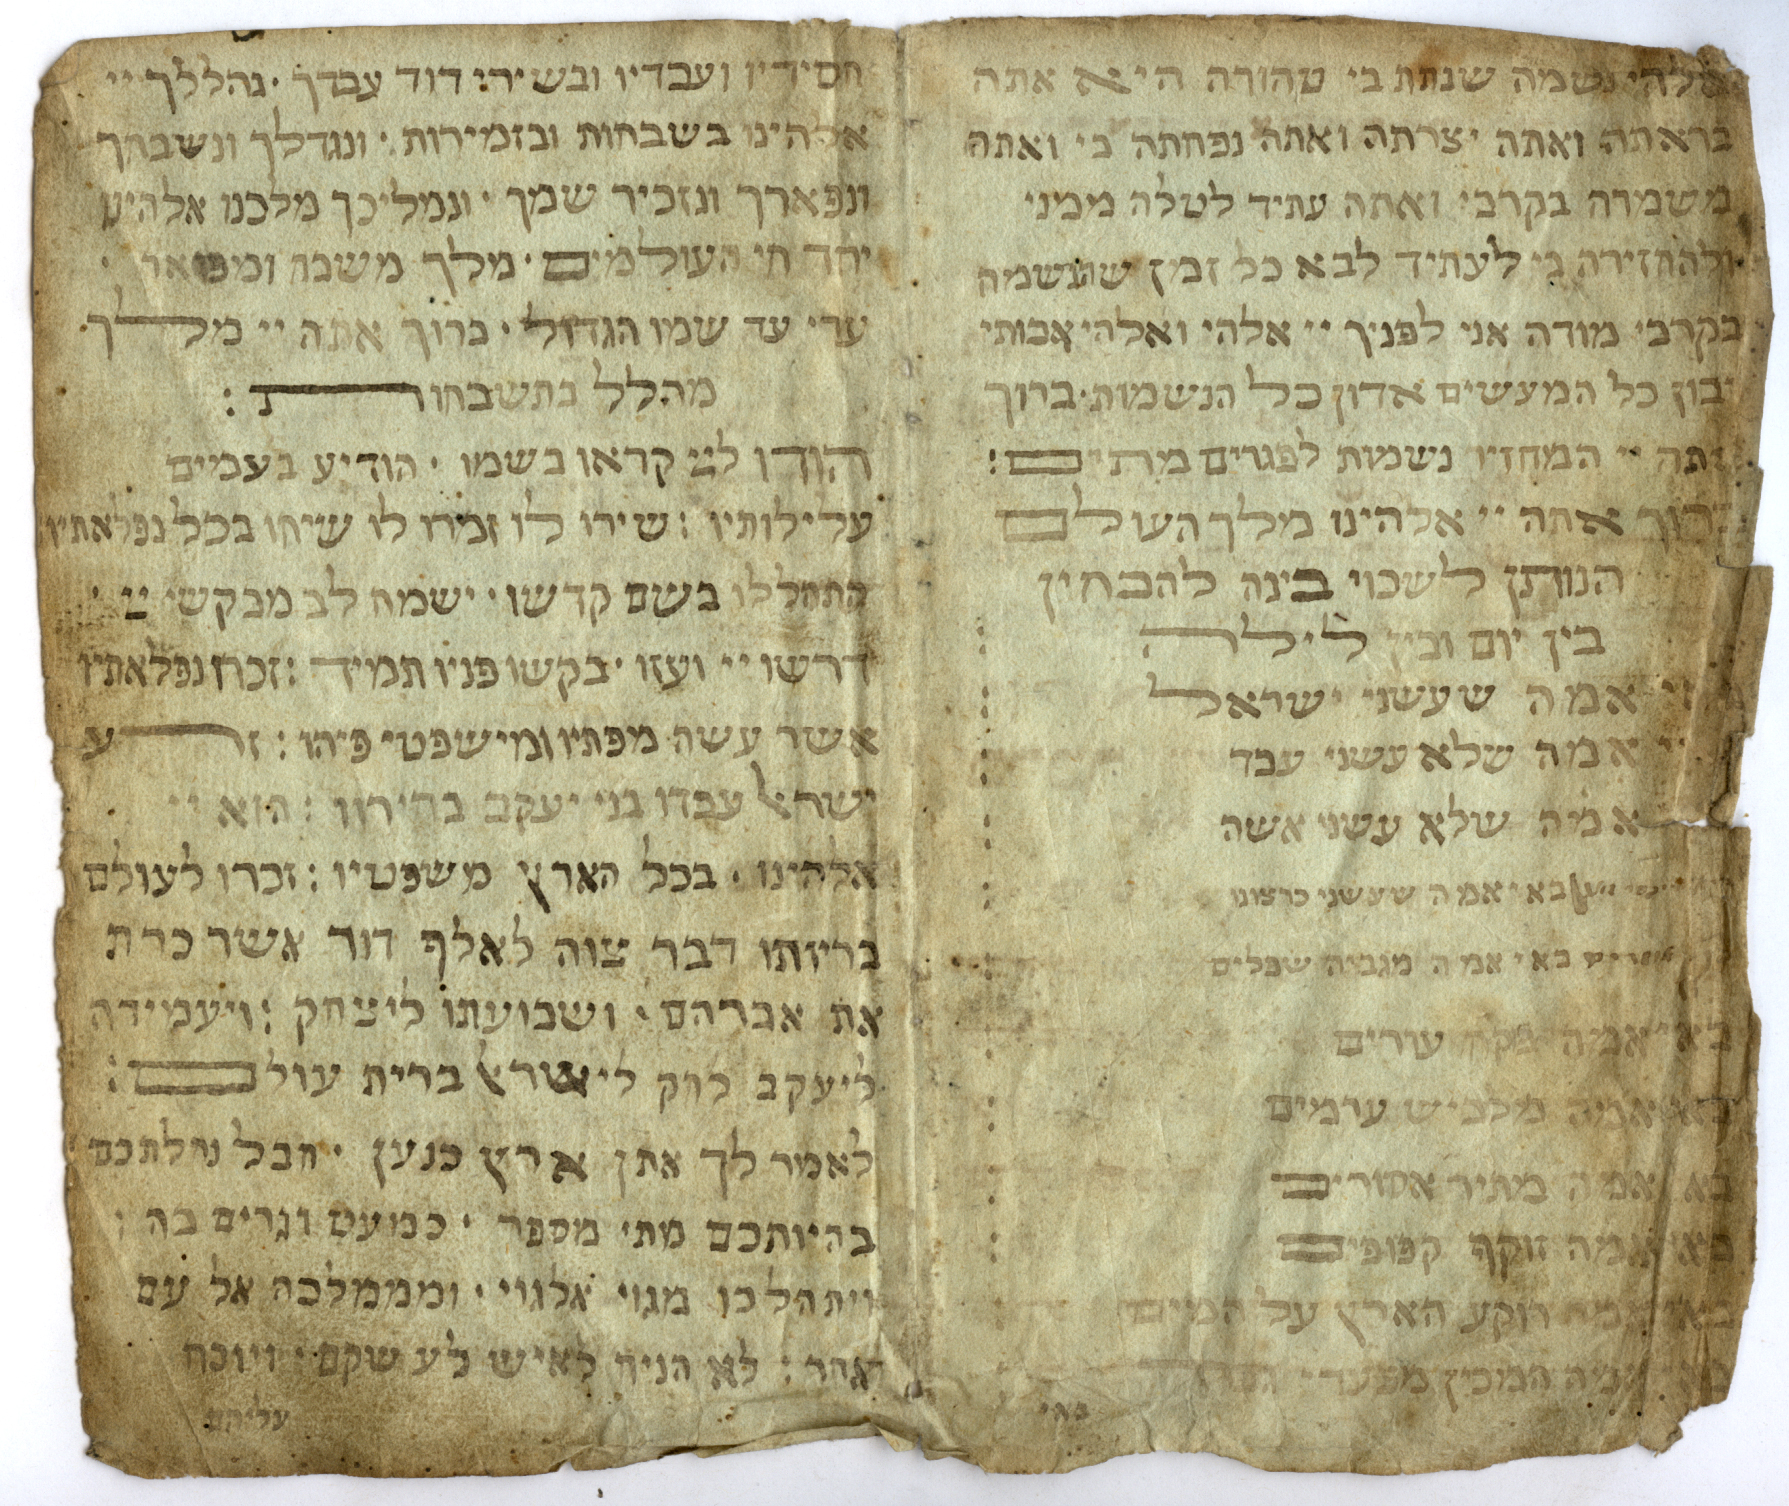 אלהי נשמה שנתת בי טהורה היא אתה
בראתה ואתה יצרתה ואתה נפחתה בי ואתה
משמרה בקרבי ואתה עתיד לטלה ממני
ולהחזירה בי לעתיד לבא כל זמן שהנשמה
בקרבי מודה אני לפניך יי אלהי ואלהי אבותי
רבון כל המעשים אדון כל הנשמות · ברוך
אתה יי המחזיר נשמות לפגרים מתים :
ברוך אתה יי אלהינו מלך העולם
הנותן לשכוי בינה להבחין
בין יום ובין לילה :
אמה שעשני ישראל :
אמה שלא עשני עבד :
אמה שלא עשני אשה :
באי אמה שעשני כרצונו :
באי אמה מגביה שפלים :
באי אמה פקח עורים :
באי אמה מלביש ערמים :
באי אמה מתיר אסורים :
באי אמה זוקף כפופים :
באי אמה רוקע הארץ על המים :
אמה המכין מצעדי גבר
באי
חסידיו ועבדיו ובשירי דוד עבדך · נהללך יי
אלהינו בשבחות ובזמירות · ונגדלך ונשבחך
ונפארך ונזכיר שמך · ונמליכך מלכנו אלהינו
יחד חי העולמים · מלך משבח ומפואר ·
עדי עד שמו הגדול · ברוך אתה יי מלך
מהלל בתשבחות :
הודו ליי קראו בשמו · הודיע בעמים
עלילותיו : שירו לו זמרו לו שיחו בכל נפלאתיו
התהללו בשם קדשו · ישמח לב מבקשי יי :
דרשו יי ועזו · בקשו פניו תמיד : זכרו נפלאתיו
אשר עשה מפתיו ומישפטי פיהו : זרע
ישראל עבדו בני יעקב בחירוו : הוא יי
אלהינו · בכל הארץ משפטיו : זכרו לעולם
בריתו דבר צוה לאלף דור אשר כרת
את אברהם · ושבועתו ליצחק : ויעמידה
ליעקב לחק לישראל ברית עולם :
לאמר לך אתן ארץ כנען · חבל נחלתכם
בהיותכם מתי מספר · כמעט וגרים בה :
ויתהלכו מגוי אלגוי · ומממלכה אל עם
אחר : לא הניח לאיש לעשקם · ויוכח
עליהם